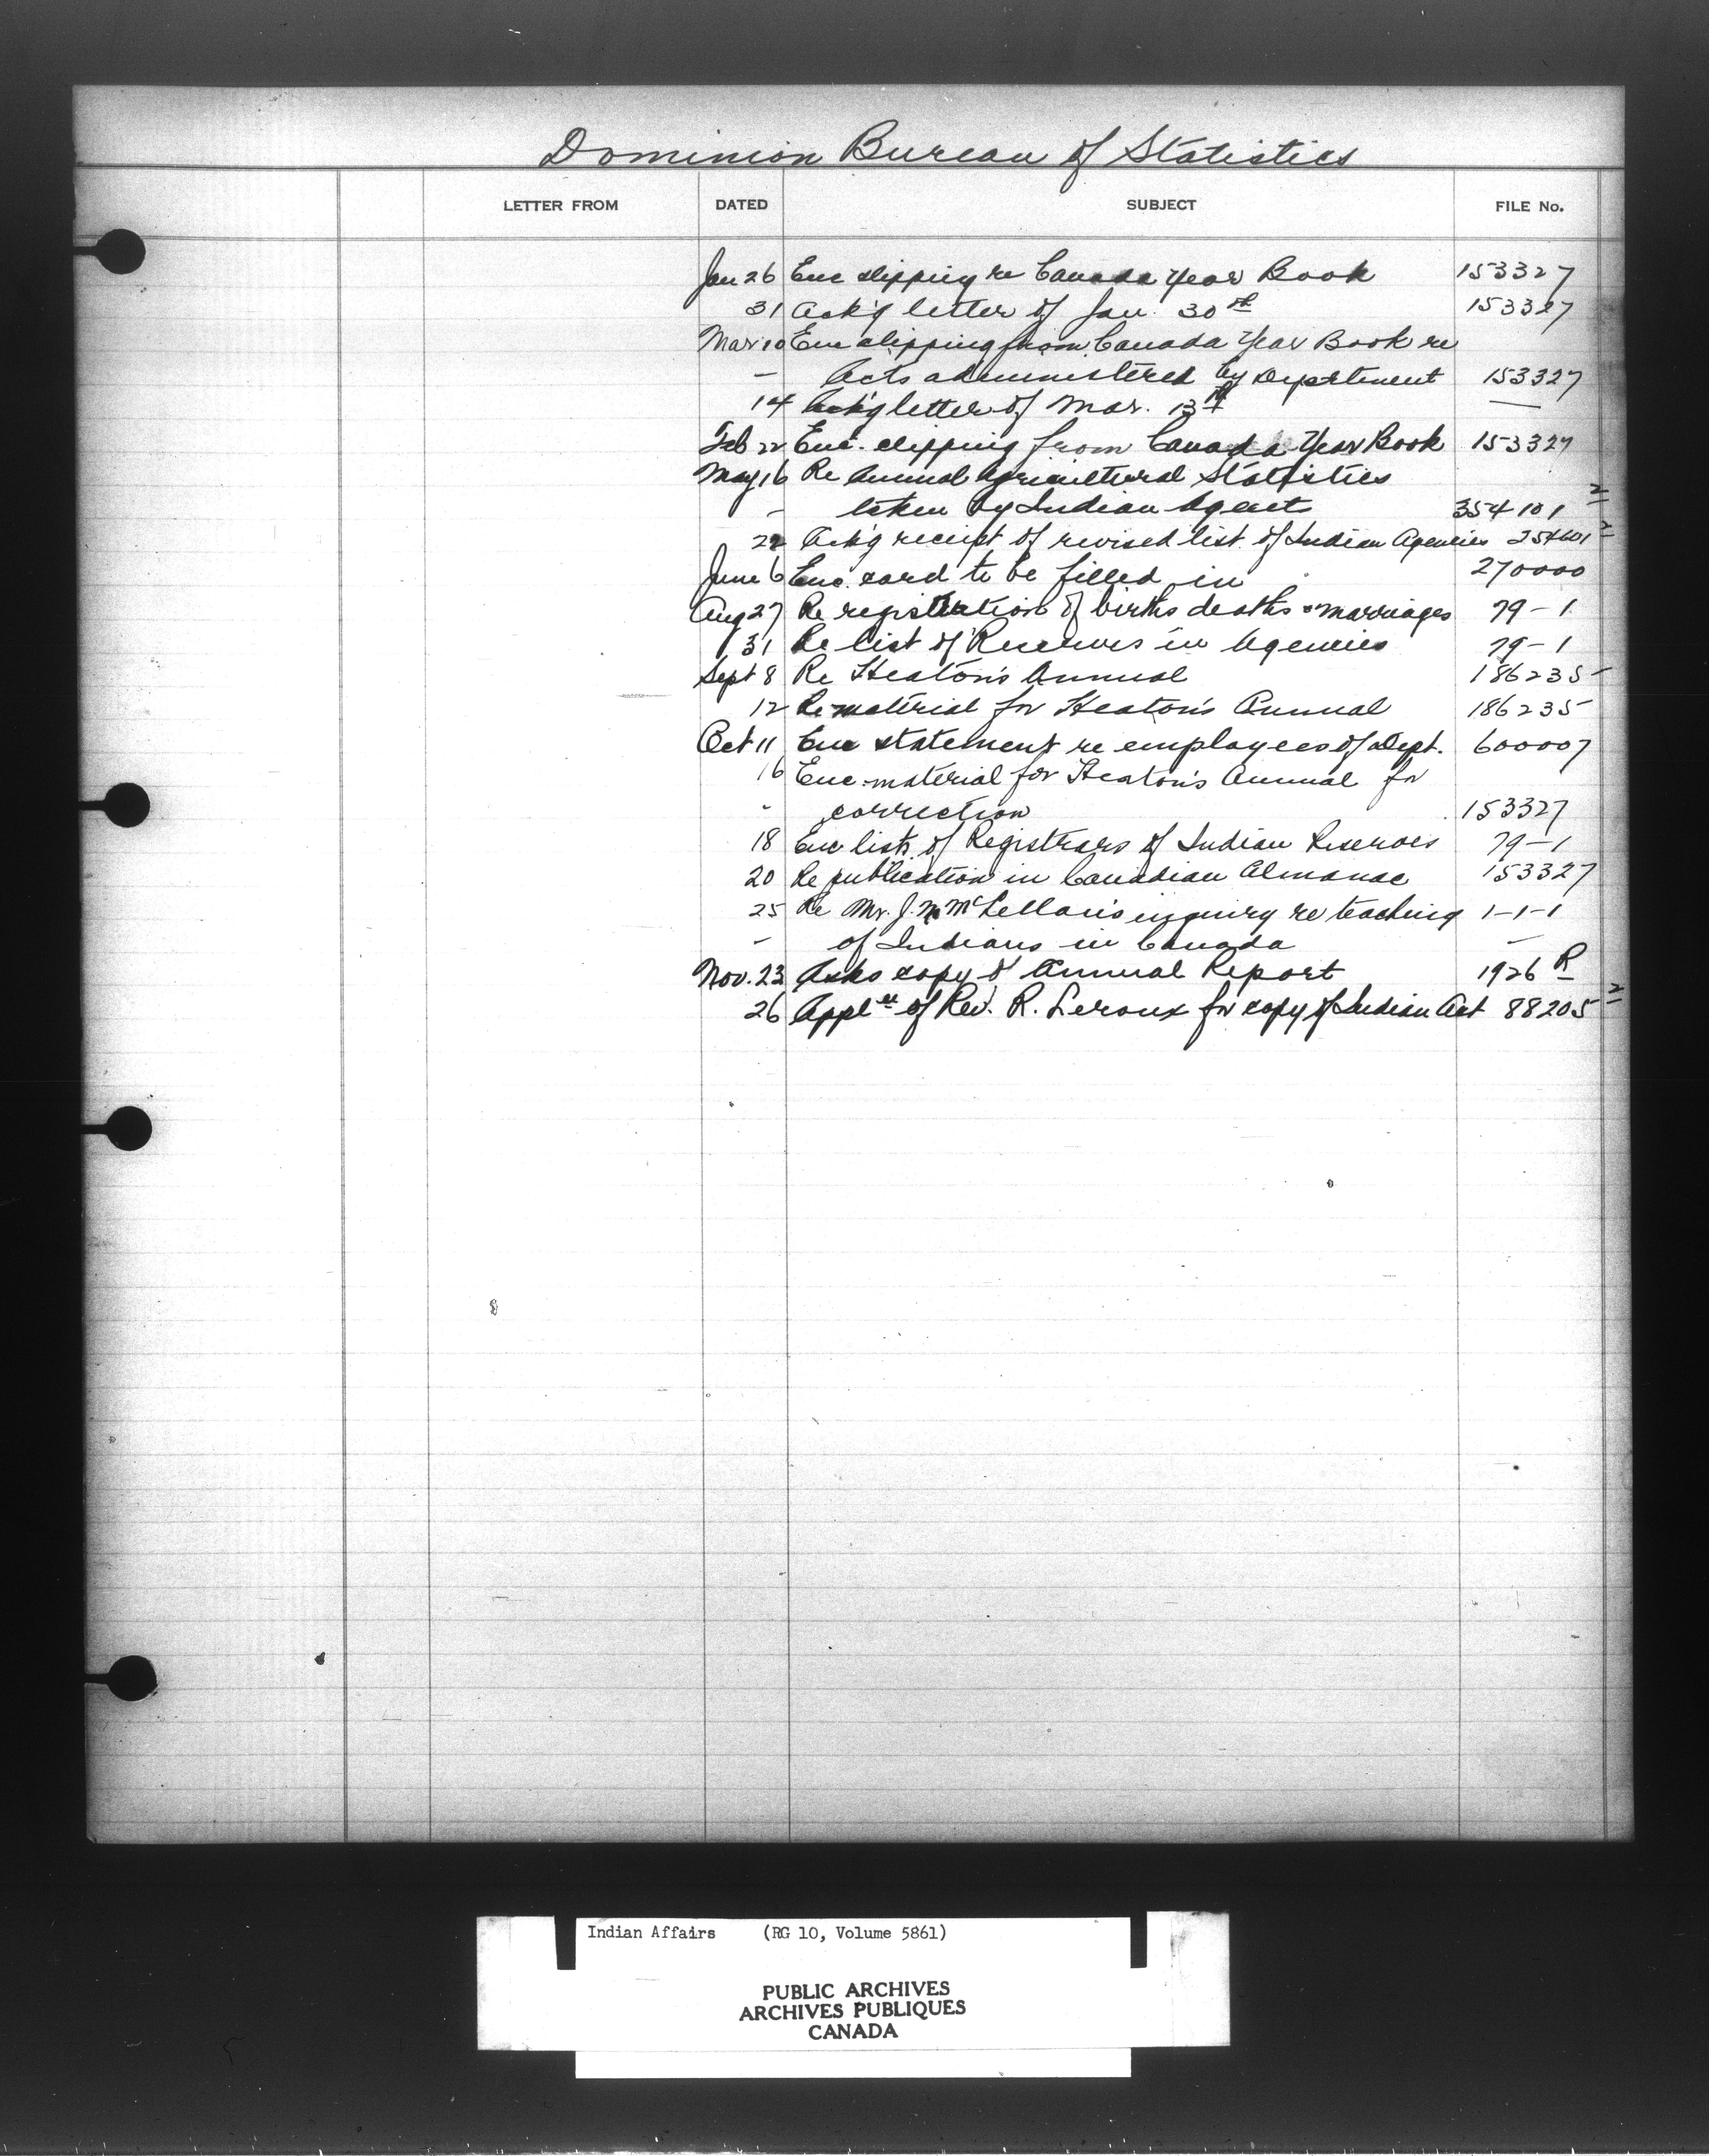 Dominion Bureau of Statistics
LETTER FROM DATED SUBJECT FILE No.
Jan 26 Enc clipping re Canada Year Book 153327
31 Ack'g letter of Jan. 30th 153327
Mar 10 Enc clipping from Canada Year Book re
- Acts administered by Department 153327
14 Ack'g letter of Mar. 13th —
Feb 22 Enc. clipping from Canada Year Book 153327
May 16 Re Annual Agricultural Statistics
- taken by Indian Agent 354101 2
22 Ack'g receipt of revised list of Indian Agencies 2
June 6 Enc. card to be filled in 270000
Aug 27 Re registration of births deaths & marriages 79-1
31 Re list of Reserves in Agencies 79-1
Sept 8 Re Heaton's Annual 186235
12 Re material for Heaton's Annual 186235
Oct 11 Enc statement re employees of Dept. 600007
16 Enc. material for Heaton's Annual for
" correction 153327
18 Enc lists of Registrars of Indian Reserves 79-1
20 Re publication in Canadian Almanac 153327
25 Re Mr. J. McLellan's inquiry re teaching 1-1-1
- of Indians in Canada -
Nov. 23 Asks copy of Annual Report 1926 R
26 Appl'n of Rev. R. Leroux for copy of Indian Act 88205 2
Indian Affairs (RG 10, Volume 5861)
PUBLIC ARCHIVES
ARCHIVES PUBLIQUES
CANADA